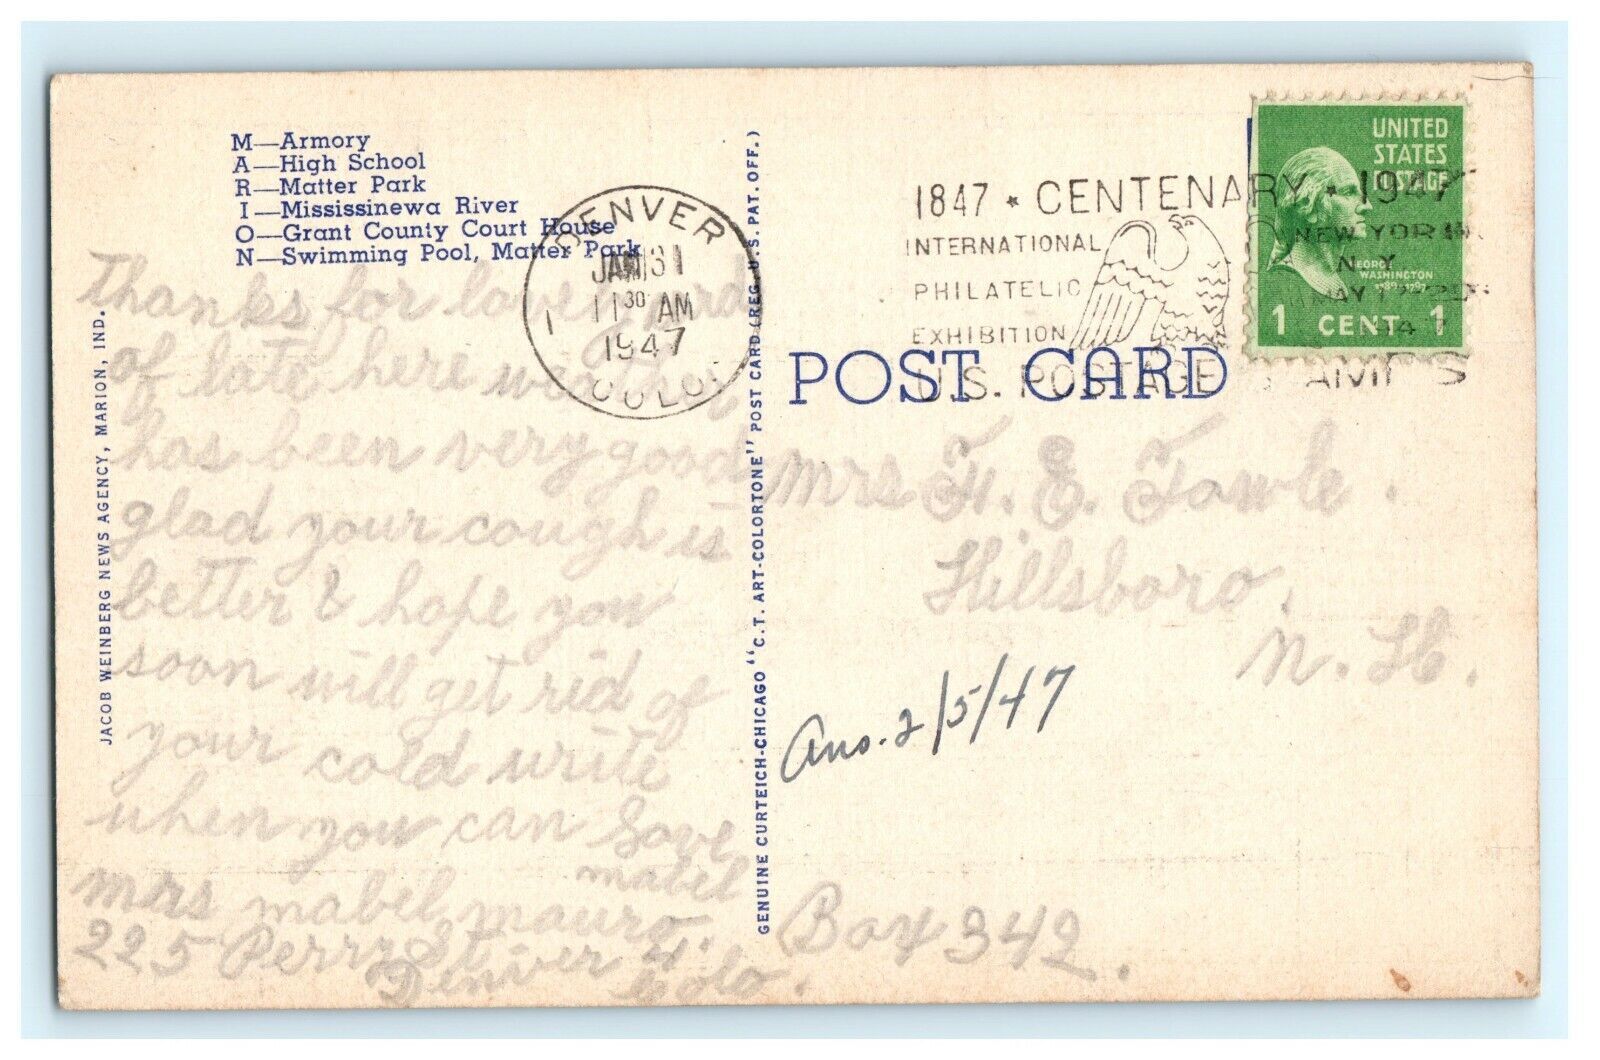 M—Armory
A—High School
R—Matter Park
I—Mississinewa River
O—Grant County Court House
N—Swimming Pool, Matter Park
JACOB WEINBERG NEWS AGENCY, MARION, IND.
Thanks for love card
of late here weather
has been very good
glad your cough is
better & hope you
soon will get rid of
your cold write
when you can Love
mabel
mrs mabel mauro
225 Perry St
Denver
Colo.
DENVER
JAN 31
11 30 AM
1947
COLO.
GENUINE CURTEICH-CHICAGO "C.T. ART-COLORTONE" POST CARD (REG. U.S. PAT. OFF.)
1847 * CENTENARY * 1947
INTERNATIONAL
PHILATELIC
EXHIBITION
NEW YORK
N.Y.
MAY 17-25
1947
U.S. POSTAGE STAMPS
UNITED
STATES
POSTAGE
GEORGE
WASHINGTON
1789-1797
1 CENT 1
POST CARD
mrs F. E. Fowle.
Hillsboro,
N. H.
Ans. 2/5/47
Box 342.